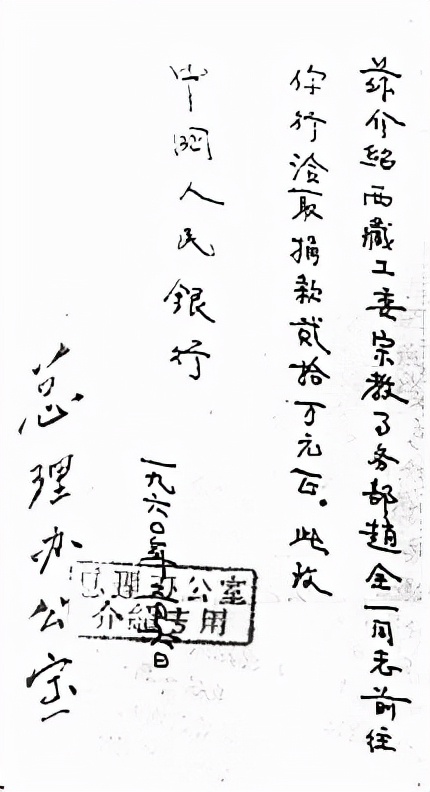 兹介紹西藏工委宗教事务部趙全一同志前往
你行洽取捐款貳拾万元正。此致
中國人民銀行
一九六〇年 月 日
总理办公室
总理办公室
介紹专用